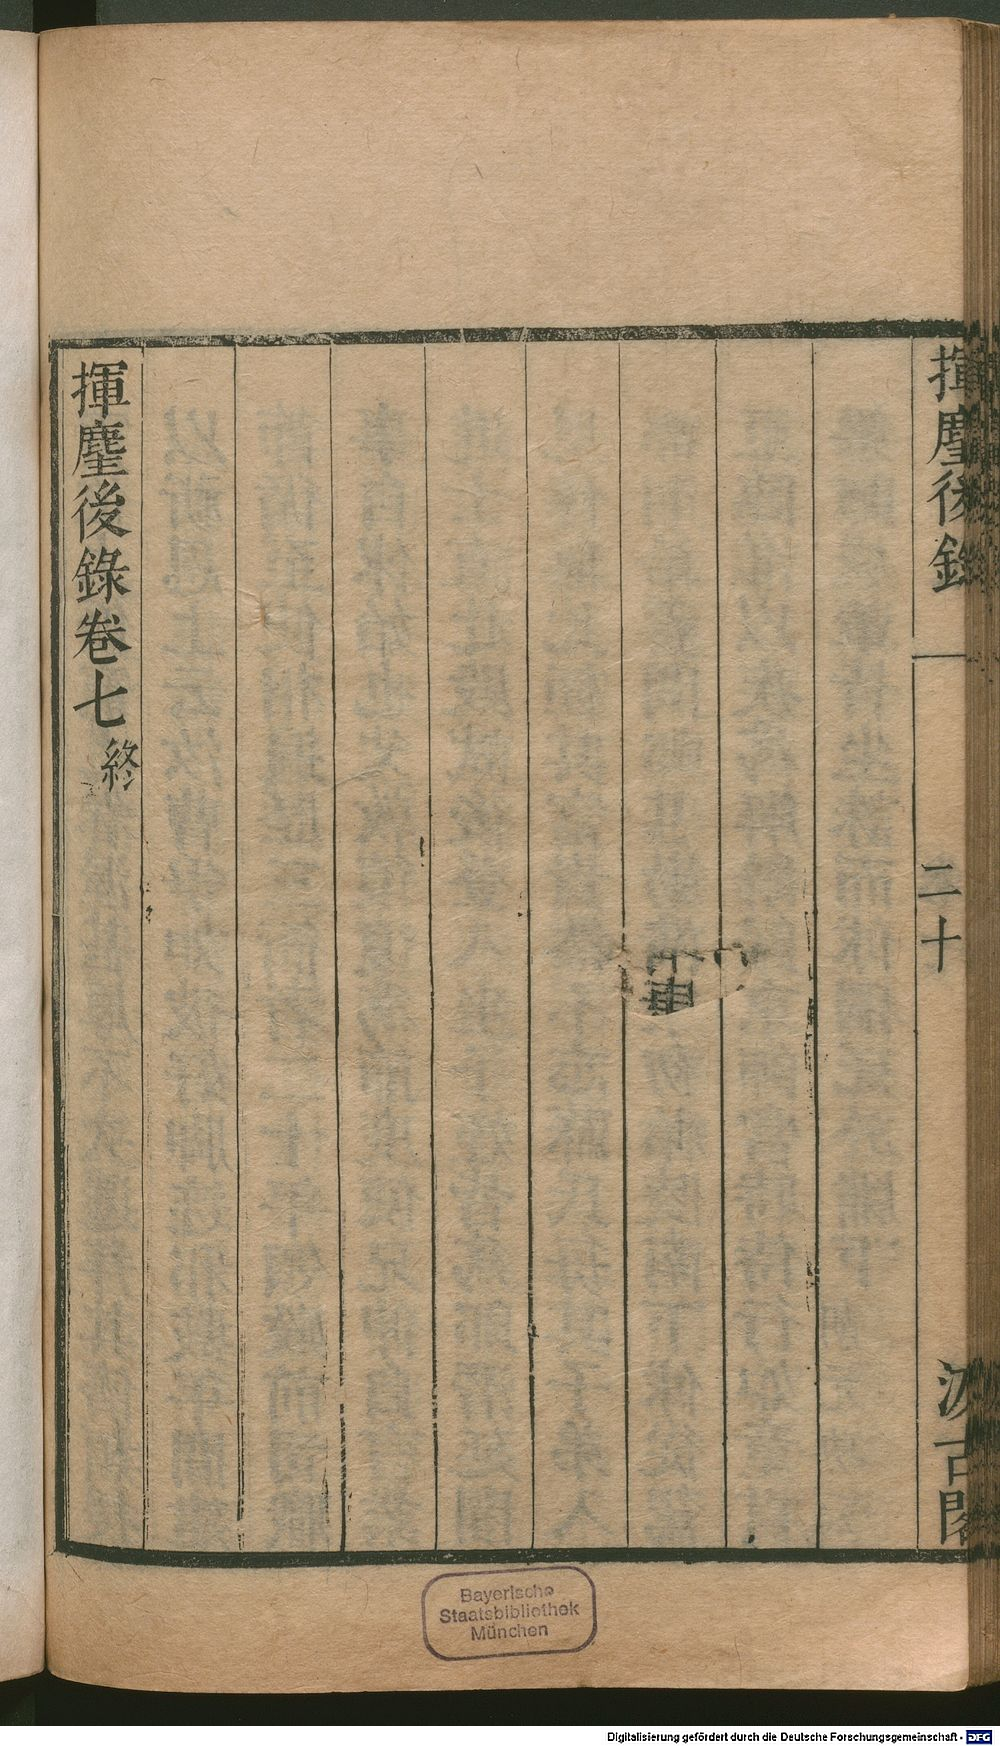 揮麈後錄
二十
汲古閣
揮麈後錄卷七終
Bayerische
Staatsbibliothek
München
Digitalisierung gefördert durch die Deutsche Forschungsgemeinschaft - DFG